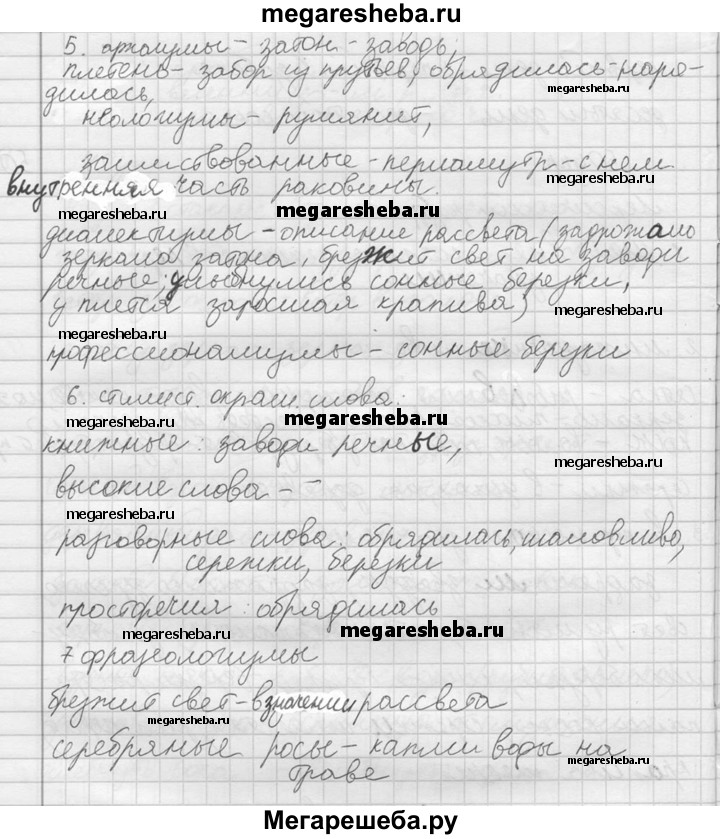 megaresheba.ru
5. архаизмы – затон – заводь;
плетень – забор из прутьев, обрядилась – наря-
megaresheba.ru
дилась,
неологизмы – румянит,
заимствованные – перламутр – с нем.
megaresheba.ru
внутренняя часть раковины.
megaresheba.ru
megaresheba.ru
диалектизмы – описание рассвета (задрожало
зеркало затона, брезжит свет на заводи
речные; улыбнулись сонные березки,
у плетня заросшая крапива)
megaresheba.ru
megaresheba.ru
профессионализмы – сонные березки
6. стилист. окраш слова:
megaresheba.ru
megaresheba.ru
книжные: заводи речные,
megaresheba.ru
высокие слова – –
megaresheba.ru
разговорные слова: обрядилась, шаловливо,
сережки, березки
просторечия: обрядилась
megaresheba.ru
megaresheba.ru
7 фразеологизмы
брезжит свет – в значении рассвета
megaresheba.ru
серебряные росы – капли воды на
megaresheba.ru
траве
Мегарешеба.ру